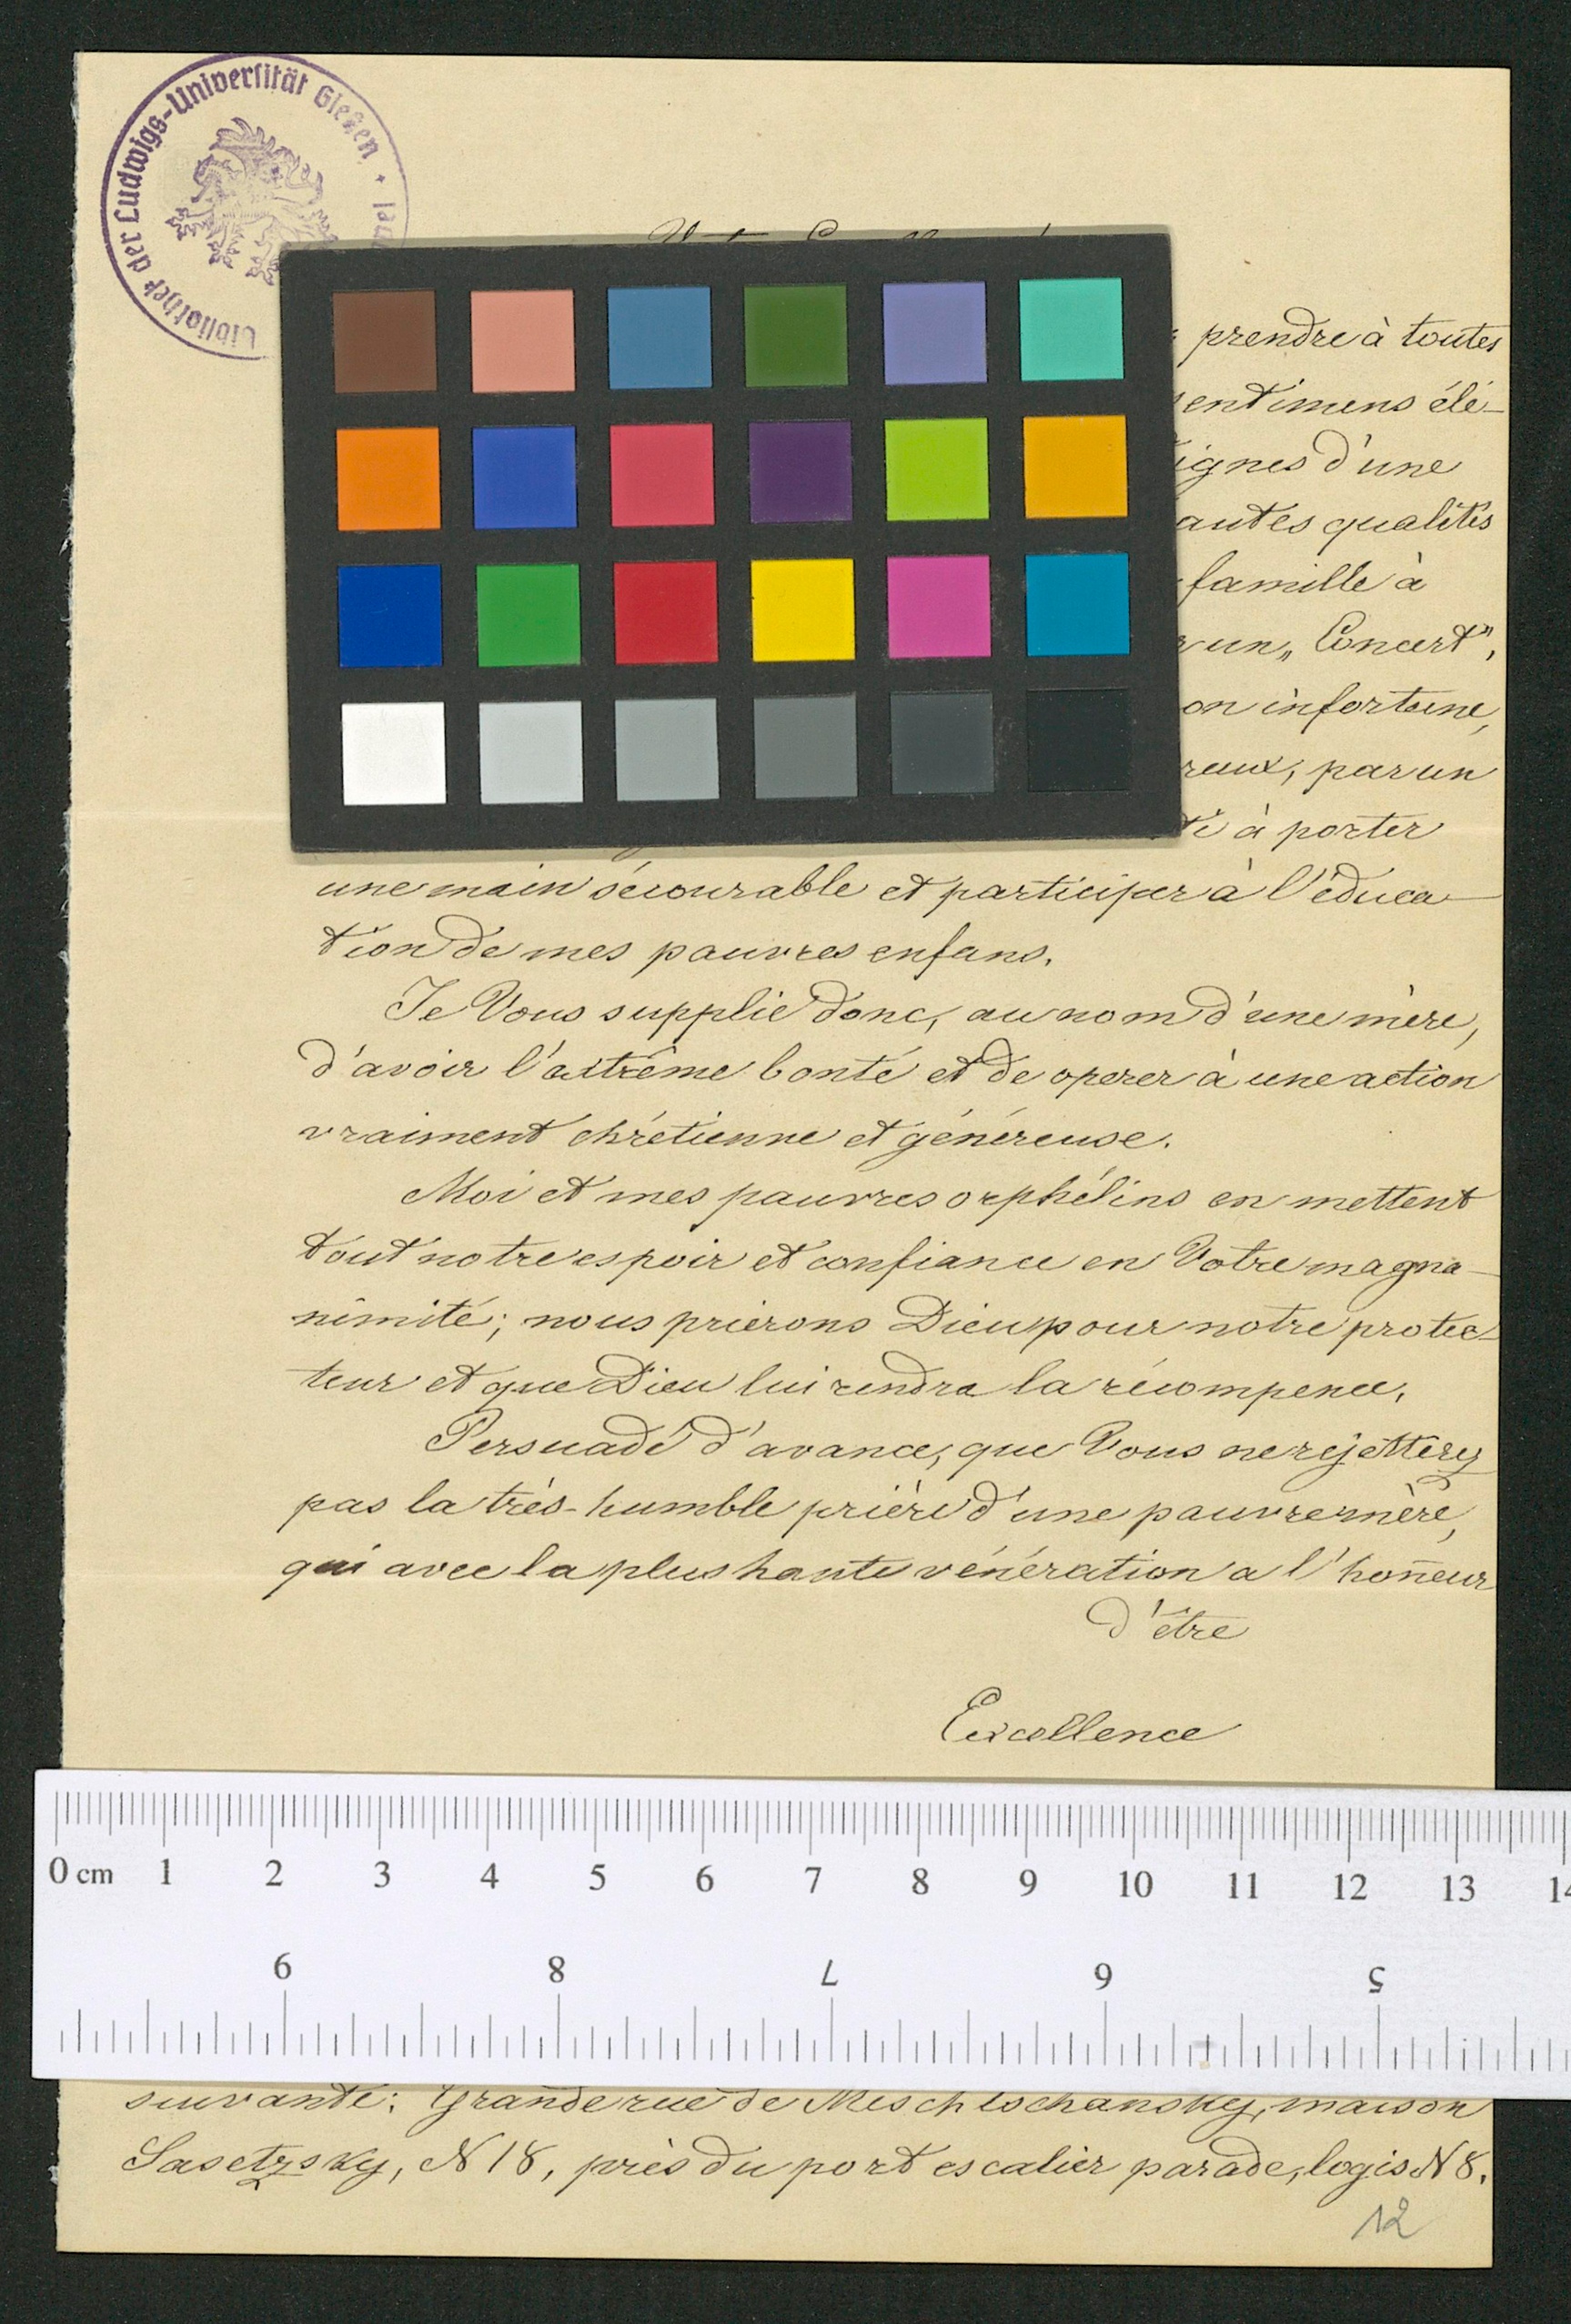 Bibliothek der Ludwigs-Universität Gießen
prendre à toutes
entimens élé-
ignes d'une
autes qualités
famille à
un „Concert",
on infortune,
reux, par un
té à porter
une main sécourable et participer à l'éduca-
tion de mes pauvres enfans.
Je Vous supplie donc, au nom d'une mère,
d'avoir l'extrême bonté et de operer à une action
vraiment chrétienne et généreuse.
Moi et mes pauvres orphélins en mettent
tout notre espoir et confiance en Votre magna-
nimité; nous prierons Dieu pour notre protec-
teur et que Dieu lui rendra la récompence.
Persuadé d'avance, que Vous ne rejetterez
pas la très-humble prière d'une pauvre mère,
qui avec la plus haute vénération a l'hon̄eur
d'être
Excellence
0 cm 1 2 3 4 5 6 7 8 9 10 11 12 13 14
9 8 7 6 5
suivante: Grande rue de Meschtschansky, maison
Sasetzsky, N 18, près du port escalier parade, logis N 8.
12